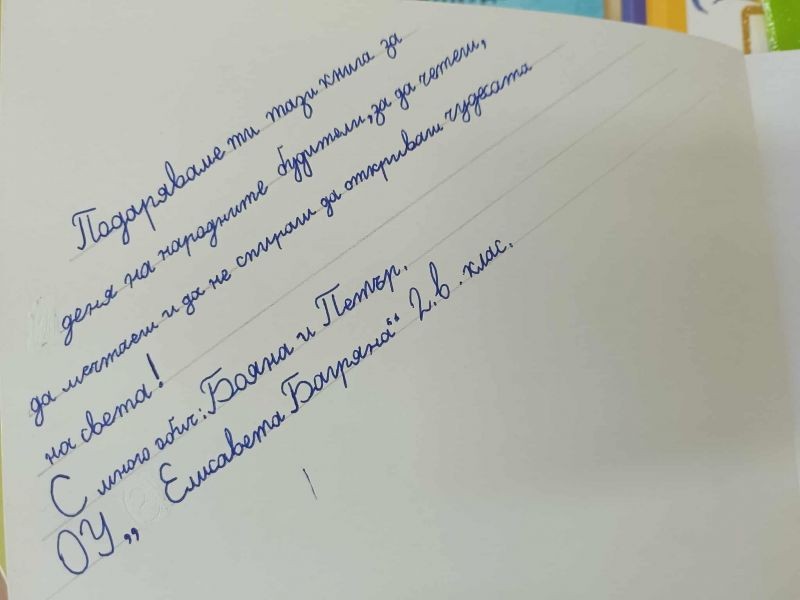 Подаряваме ти тази книга за
деня на народните будители, за да четеш,
да мечтаеш и да не спираш да откриваш чудесата
на света!
С много обич: Бояна и Петър.
ОУ „ Елисавета Багряна“ 2.в. клас.